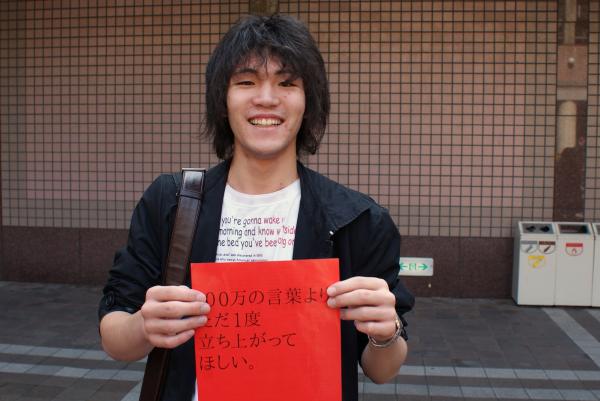 you're gonna wake u
morning and know
he bed you've bee
00万の言葉より
だ1度
立ち上がって
ほしい。